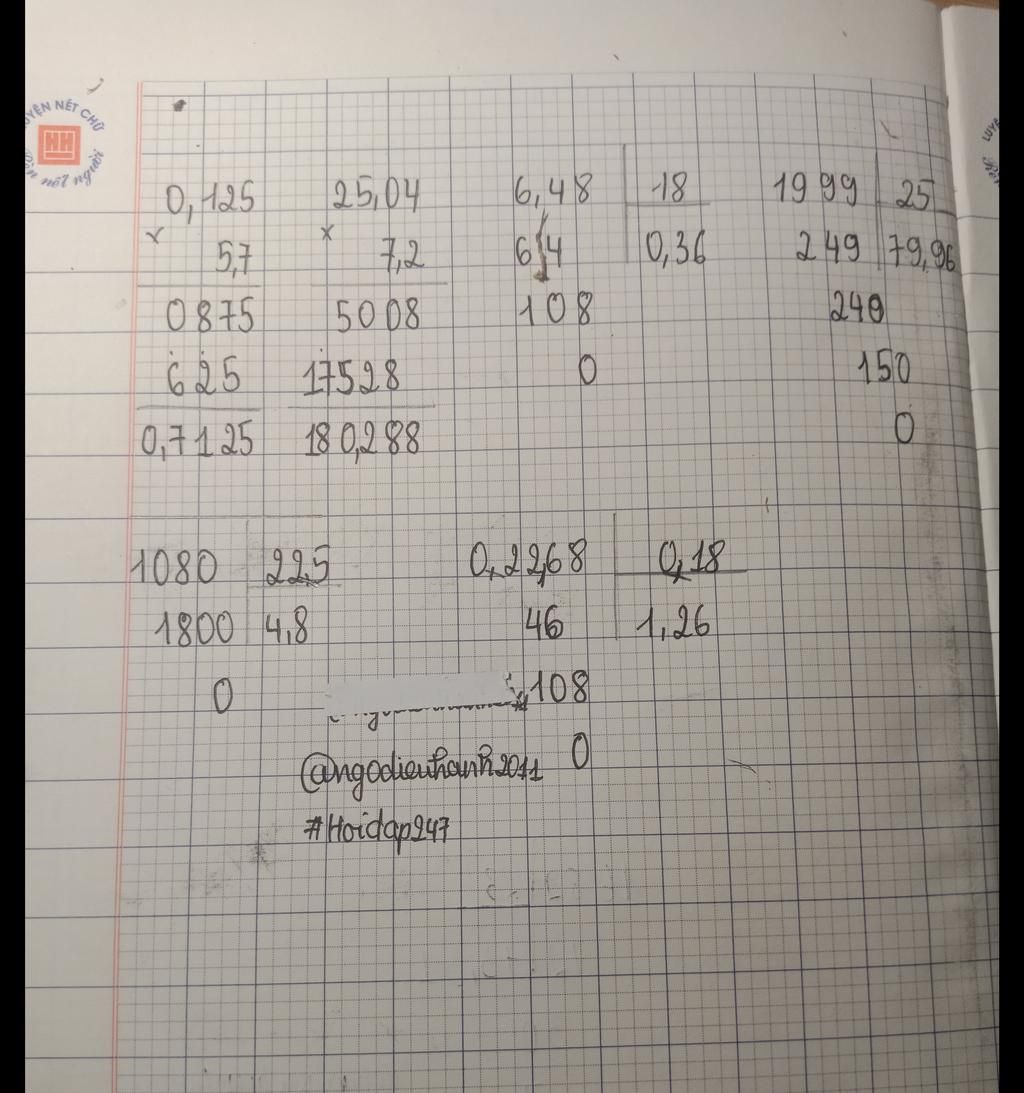 LUYỆN NÉT CHỮ
Rèn nết người
0,125 25,04 6,48 18 1999 25
x 5,7 x 7,2 64 0,36 249 79,96
0875 5008 108 240
625 17528 0 150
0,7125 180,288 0
1080 22,5 0,2268 0,18
1800 4,8 46 1,26
0 108
@ngodieuhanh2011 0
#Hoidap247